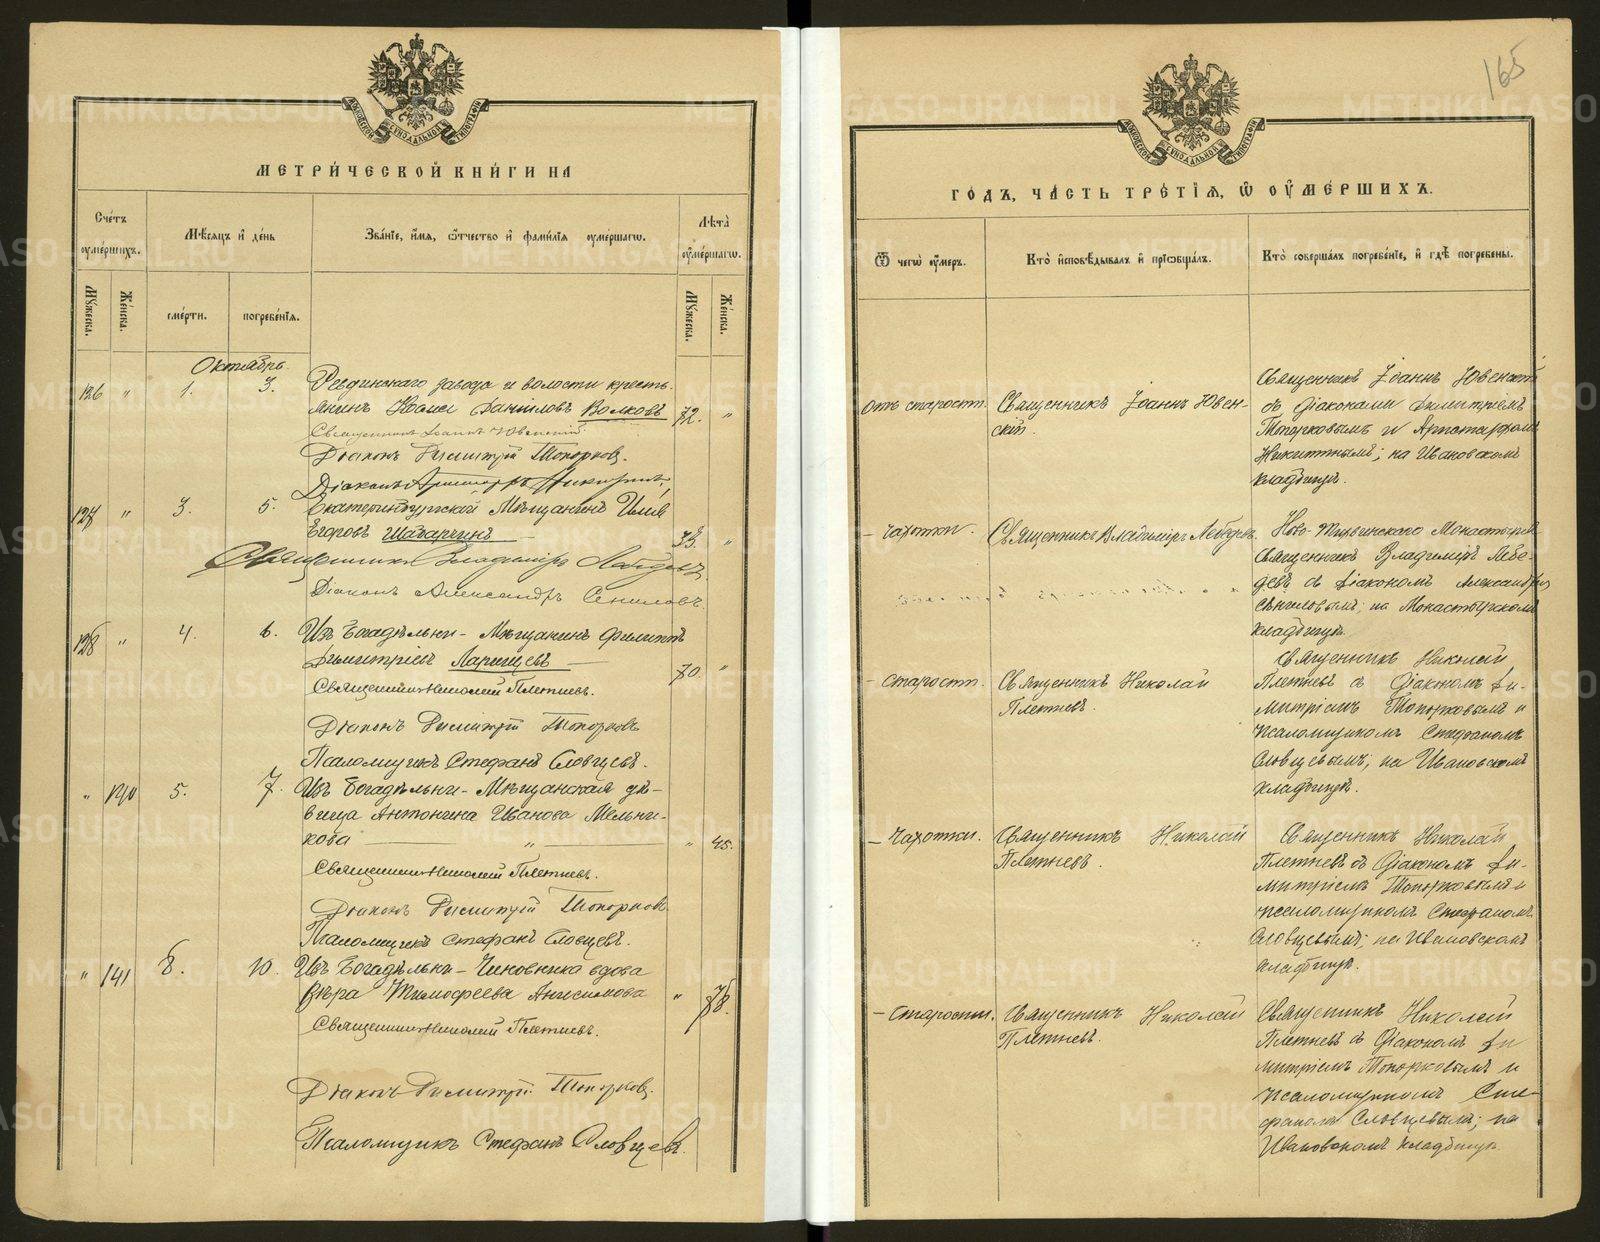 МЕТРИ́ЧЕСКОЙ КНИ́ГИ НА
Сче́тъ оумéршихъ.
Мѣ́сяцъ и҆ де́нь
Зва́нїе, и҆́мя, ѻ҆́тчество и҆ фами́лїя оуме́ршагѡ.
Лѣ́та оу҆ме́ршагѡ.
Мꙋ́жеска.
Же́нска.
сме́рти.
погребе́нїя.
Мꙋ́жеска.
Же́нска.
Октябрь.
126 " 1. 3. Ревдинскаго завода и волости кресть-
янинъ Даніиловъ Волковъ 72. "
Священникъ Іоаннъ Ювенскій.
Діаконъ Димитрій Топорковъ.
Діаконъ Аристархъ Никитинъ.
127 " 3. 5. Екатеринбургскій Мѣщанинъ Илія
Егоровъ Шабарчинъ 33. "
Священникъ Владиміръ Лебедевъ.
Діаконъ Александръ Сениловъ.
128 " 4. 6. Изъ Богадѣльни - Мѣщанинъ Филиппъ
Димитріевъ Ларищевъ 70. "
Священникъ Николай Плетневъ.
Діаконъ Димитрій Топорковъ
Псаломщикъ Стефанъ Словцевъ.
" 140 5. 7. Изъ Богадѣльни - Мѣщанская дѣ-
вица Антонина Иванова Мельни-
кова " " 45.
Священникъ Николай Плетневъ.
Діаконъ Димитрій Топорковъ
Псаломщикъ Стефанъ Словцевъ.
" 141 8. 10. Изъ Богадѣльни - Чиновника вдова
Вѣра Тимофеева Анисимова " 78.
Священникъ Николай Плетневъ.
Діаконъ Димитрій Топорковъ.
Псаломщикъ Стефанъ Словцевъ.
165
ГО́ДЪ, ЧА́СТЬ ТРЕ́ТЇЯ, Ѡ҆ ОУ҆МЕ́РШИХЪ.
Ѿ чегѡ̀ оу҆́меръ.
Кто̀ и҆сповѣ́дывалъ и҆ прїѡбща́лъ.
Кто̀ соверша́лъ погребе́нїе, и҆ гдѣ̀ погребены.
Отъ старости.
Священникъ Іоаннъ Ювен-
скій.
Священникъ Іоаннъ Ювенскій
съ діаконами Димитріемъ
Топорковымъ и Аристархомъ
Никитинымъ; на Ивановскомъ
кладбищѣ.
- Чахотки.
Священникъ Владиміръ Лебедевъ.
Ново-Тихвинскаго Монастыря
священникъ Владимиръ Лебе-
девъ съ діакономъ Александромъ
Сениловымъ; на Монастырскомъ
кладбищѣ.
- старости.
Священникъ Николай
Плетневъ.
Священникъ Николай
Плетневъ съ діакономъ Ди-
митріемъ Топорковымъ и
псаломщикомъ Стефаномъ
Словцевымъ, на Ивановскомъ
кладбищѣ.
- Чахотки.
Священникъ Николай
Плетневъ.
Священникъ Николай
Плетневъ съ діакономъ Ди-
митріемъ Топорковымъ и
псаломщикомъ Стефаномъ
Словцевымъ; на Ивановскомъ
кладбищѣ.
- Старости.
Священникъ Николай
Плетневъ.
Священникъ Николай
Плетневъ съ діакономъ Ди
митріемъ Топорковымъ и
псаломщикомъ Сте-
фаномъ Словцевымъ; на
Ивановскомъ кладбищѣ.